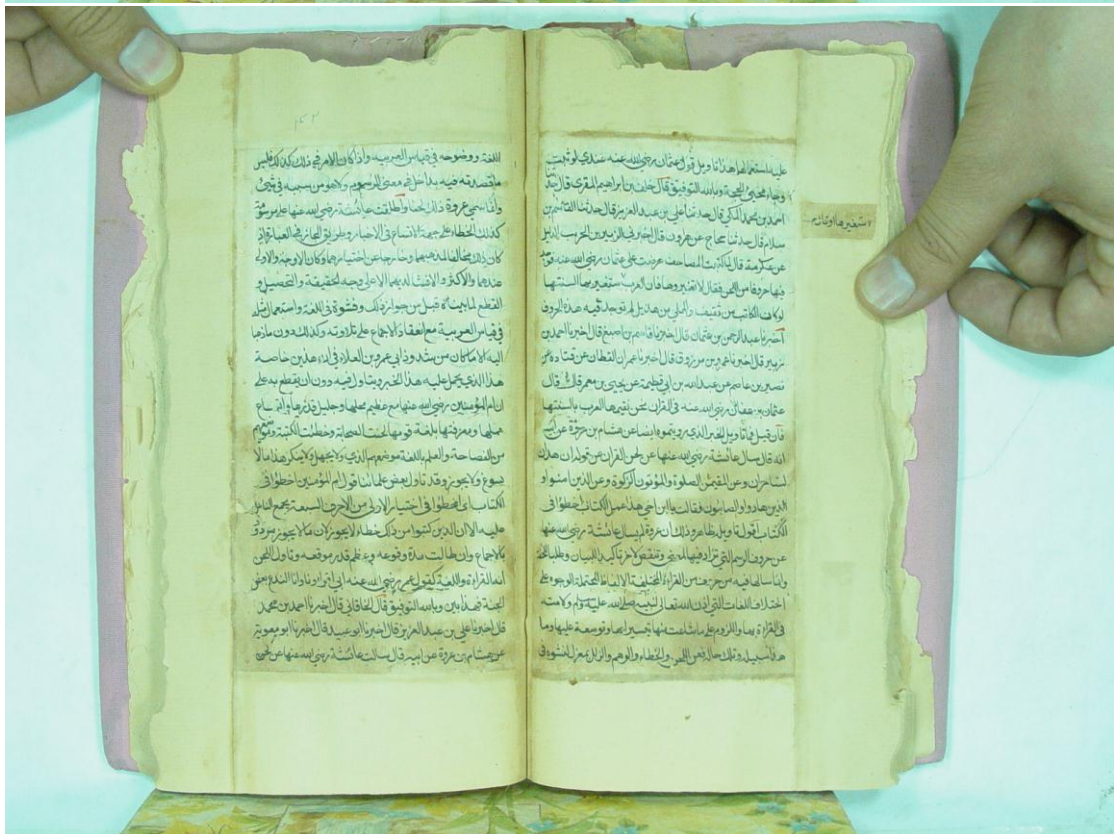 عليه واستعمالها هذا تاويل قول عثمان رضي الله عنه عندي لو ثبت
وجاء مجيئ الحجة وبالله التوفيق قال خلف بن ابراهيم المقرى قال حدثنا
احمد بن محمد المكي قال حدثنا علي بن عبد العزيز قال حدثنا القاسم بن
سلام قال حدثنا حجاج عن هرون قال اخبرني الزبير بن الخريت
عن عكرمة قال لما كتبت المصاحف عرضت على عثمان رضي الله عنه فوجد
فيها حروفا من اللحن فقال لا تغيروها فان العرب ستغيرها بالسنتها
لو كان الكاتب من ثقيف والملي من هذيل لم توجد فيه هذه الحروف
اخبرنا عبد الرحمن بن عثمان قال اخبرنا قاسم بن اصبغ قال اخبرنا احمد بن
زهير قال اخبرنا عمرو بن مرزوق قال اخبرنا عمران القطان عن قتادة عن
نصر بن عاصم عن عبد الله بن ابي فطيمة عن يحيى بن معمر قال قال
عثمان بن عفان رضي الله عنه في القران لحن تقيمها العرب بالسنتها
فان قيل فما تاويل الخبر الذي رويتموه ايضا عن هشام بن عروة عن ابيه
انه قال سال عائشة رضي الله عنها عن لحن القران عن قوله ان هذان
لساحران وعن المقيمين الصلوة والمؤتون الزكوة وعن الذين امنوا و
الذين هادوا والصابئون فقالت يا ابن اخي هذا عمل الكتاب اخطؤا في
الكتاب اقول تاويله ظاهر وذلك ان عروة لم يسال عائشة رضي الله عنها
عن حروف الرسم التي تزاد فيها لمعنى وتنقص لاخر تاكيدا للبيان وطلبا للخفة
وانما سالها فيه من حروف من القراءة المختلفة الالفاظ المحتملة الوجوه على
اختلاف اللغات التي اذن الله تعالى لنبيه صلى الله عليه وسلم ولامته
في القراءة بها واللزوم على ما شاءت منها تيسيرا بها وتوسعة عليها وما
هذا سبيله وتلك حاله فعن اللحن والخطاء والوهم والزلل بمعزل لفشوه في
ستغيرها او قال
اللغة ووضوحه في قياس العربيه واذا كان الامر في ذلك كذلك فليس
ما قصدته فيه بداخل في معنى المرسوم ولا هو من سببه في شئ
وانما سمي عروة ذلك لحنا واطلقت عائشة رضي الله عنها على مرسومة
كذلك الخطاء على جهة الاتساع في الاخبار وطريق المجاز في العبارة اذ
كان ذلك مخالفا لمذهبهما وخارجا عن اختيارهما وكان الاوجه والاولى
عندهما والاكثر والافشا لديهما الا على وجه الحقيقة والتحصيل و
القطع لما بيناه قبل من جواز ذلك وفشوه في اللغة واستعمال مثله
في قياس العربية مع انعقاد الاجماع على تلاوته وكذلك دون ما ذهبا
اليه الا ما كان من شذوذ ابي عمرو بن العلاء في انه هذين خاصة
هذا الذي يحمل عليه هذا الخبر ويتاول فيه دون ان يقطع به على
ان ام المؤمنين رضي الله عنها مع عظيم محلها وجليل قدرها واتساع
عملها ومعرفتها بلغة قومها لحنت الصحابة وخطئت الكتبة وموضعهم
من الفصاحة والعلم باللغة موضعهم الذي لا يجهل ولا ينكر هذا ما لا
يسوغ ولا يجوز وقد تاول بعض علمائنا قول ام المؤمنين اخطؤا في
الكتاب اي اخطؤا في اختيار الاولى من الاحرف السبعة بجمع الناس
عليه لا ان الذين كتبوا من ذلك خطاء لا يجوز لان ما لا يجوز مردود
بالاجماع وان طالت مدة وقوعه وعظم قدر موقعه وتاول اللحن
انه القراءة واللغة كقول عمر رضي الله عنه ابي اقرانا وانا لندع بعض
لحنه فهذا بين وبالله التوفيق قال الخاقاني قال اخبرنا احمد بن محمد
قال اخبرنا علي بن عبد العزيز قال اخبرنا ابو عبيد قال اخبرنا ابو معوية
عن هشام بن عروة عن ابيه قال سالت عائشة رضي الله عنها عن لحن